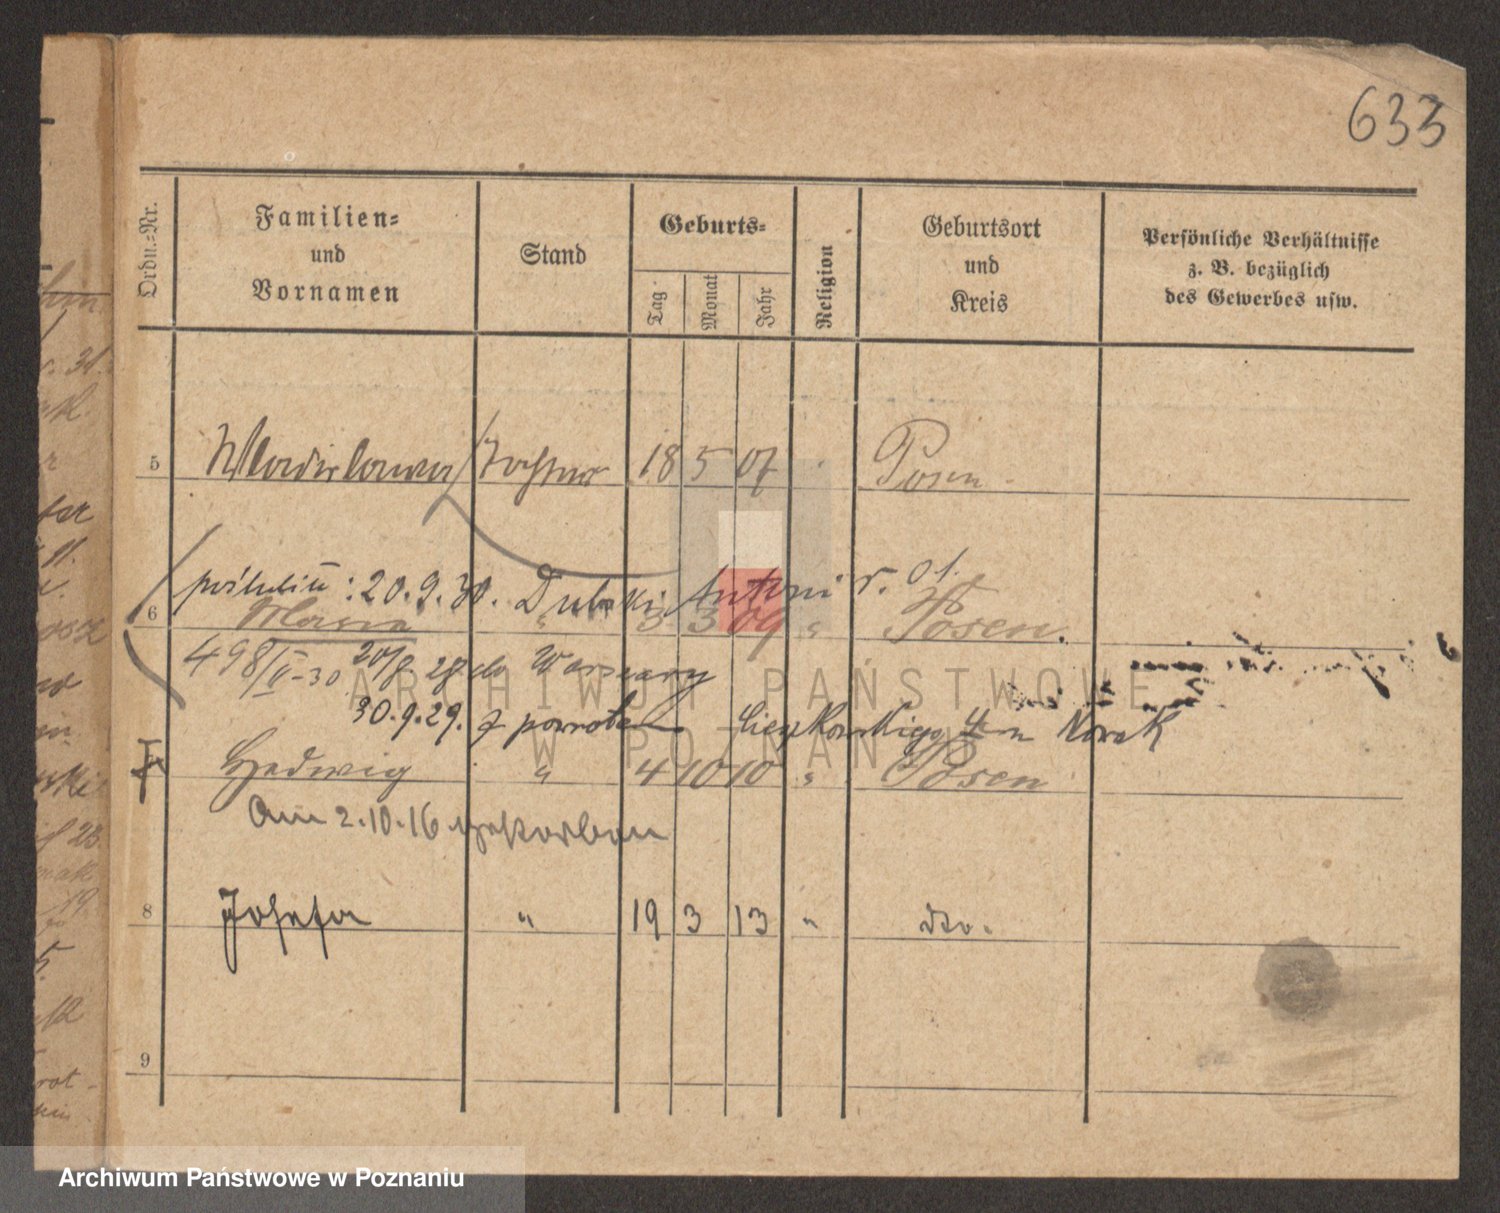 633
Ordn.-Nr.
Familien- und Vornamen
Stand
Geburts-
Tag
Monat
Jahr
Religion
Geburtsort und Kreis
Persönliche Verhältnisse z. B. bezüglich des Gewerbes usw.
5 Wladislawa Tochter 18 5 07 Posen
: 20.9.30. Dubski Antoni r. 01.
6 Maria " 3 3 09 " Posen.
498/II-30 20/8 28 do Warszawy
30.9.29. z powrotem Nowak
7 Hedwig " 4 10 10 " Posen
Am 2.10.16 gestorben
8 Josefa " 19 3 13 " dto.
9
ARCHIWUM PAŃSTWOWE
W POZNANIU
Archiwum Państwowe w Poznaniu